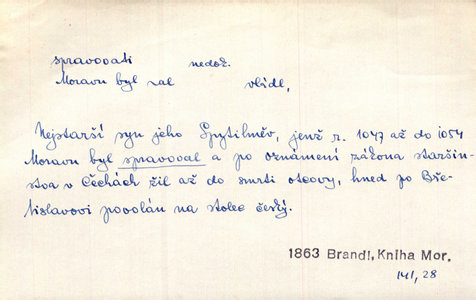 spravovati nedož.
Moravu byl zal vládl,
Nejstarší syn jeho Spytihněv, jenž r. 1047 až do 1054
Moravu byl spravoval a po oznámení zákona staršin-
stva v Čechách žil až do smrti otcovy, hned po Bře-
tislavovi povolán na stolec český.
1863 Brandl, Kniha Mor.
141, 28